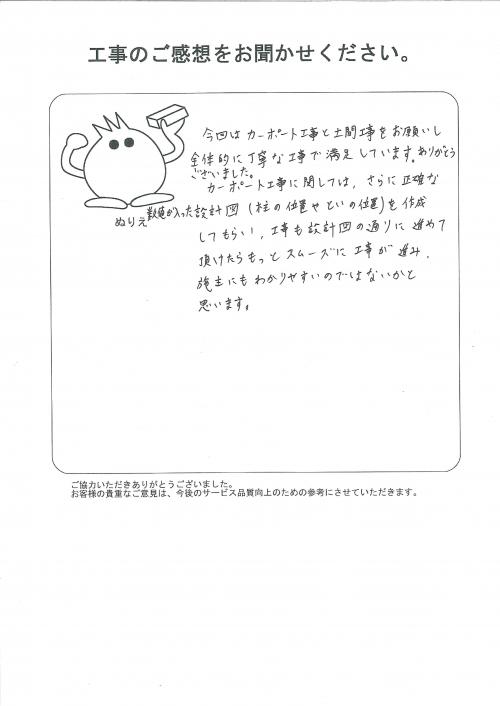 工事のご感想をお聞かせください。
今回はカーポート工事と土間工事をお願いし
全体的に丁寧な工事で満足しています。ありがとう
ございました。
カーポート工事に関しては、さらに正確な
数値が入った設計図(柱の位置やといの位置)を作成
ぬりえ
してもらい、工事も設計図の通りに進めて
頂けたらもっとスムーズに工事が進み、
施主にもわかりやすいのではないかと
思います。
ご協力いただきありがとうございました。
お客様の貴重なご意見は、今後のサービス品質向上のための参考にさせていただきます。